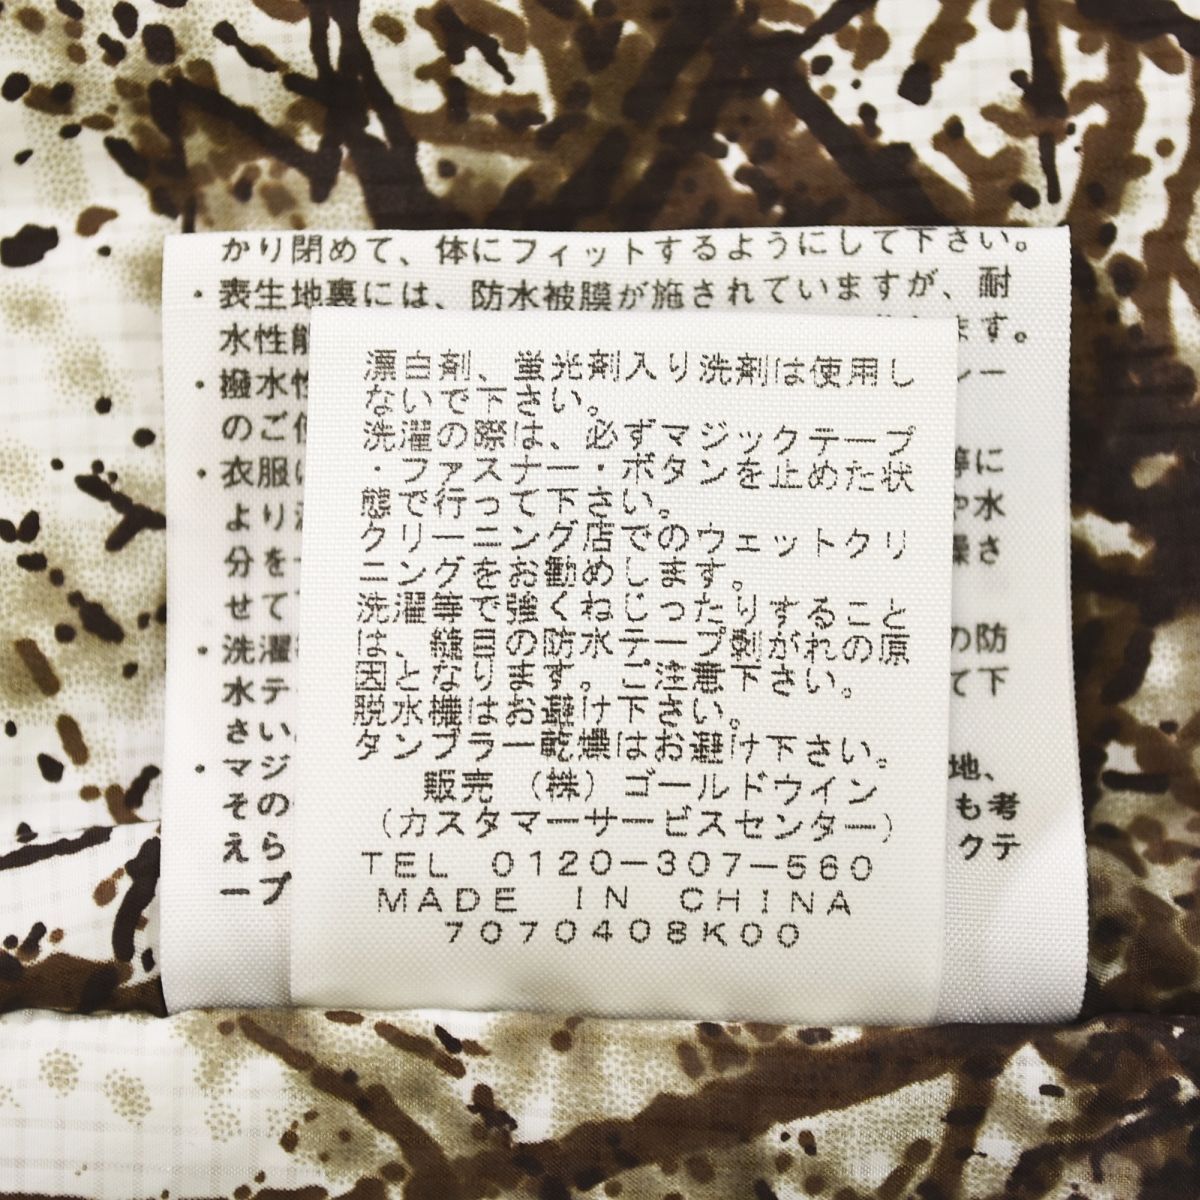 かり閉めて、体にフィットするようにして下さい。
・表生地裏には、防水被膜が施されていますが、耐
水性能
ます。
・撥水性
レー
のご使
・衣服に
等に
より
や水
分を
燥さ
せて
・洗濯
の防
水テ
て下
さい
・マジ
地、
その
も考
えら
クテ
ープ
漂白剤、蛍光剤入り洗剤は使用し
ないで下さい。
洗濯の際は、必ずマジックテープ
・ファスナー・ボタンを止めた状
態で行って下さい。
クリーニング店でのウェットクリ
ニングをお勧めします。
洗濯等で強くねじったりすること
は、縫目の防水テープ剥がれの原
因となります。ご注意下さい。
脱水機はお避け下さい。
タンブラー乾燥はお避け下さい。
販売 (株) ゴールドウイン
(カスタマーサービスセンター)
TEL 0120-307-560
MADE IN CHINA
7070408K00